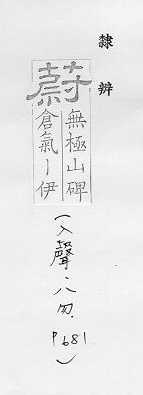 隸辨
蔚
無極山碑
倉氣丨伊
(入聲.八勿.
P681)